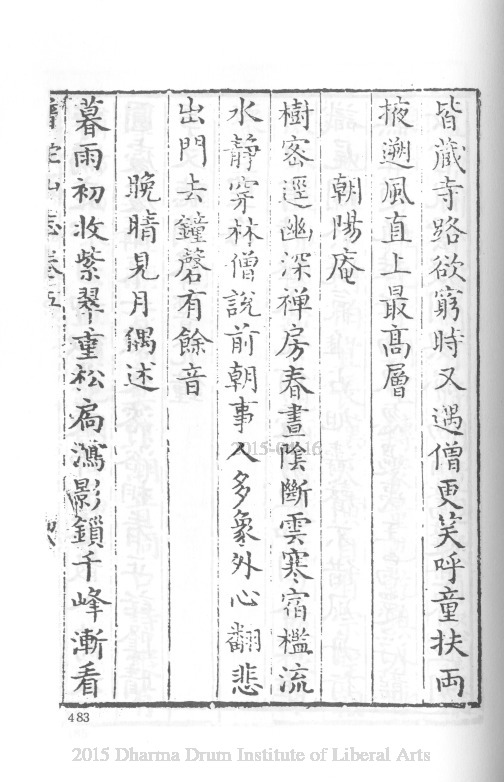 皆藏寺路欲窮時又遇僧更笑呼童扶両
掖遡風直上最高層
朝陽庵
樹宻逕幽深禅房春晝陰斷雲寒宿檻流
水静穿林僧說前朝事人多象外心翻悲
出門去鐘磬有餘音
晚晴見月偶述
暮雨初收紫翠重松扃鴻影鎖千峰漸看
普陀山志卷五
483
2015-04-16
2015 Dharma Drum Institute of Liberal Arts